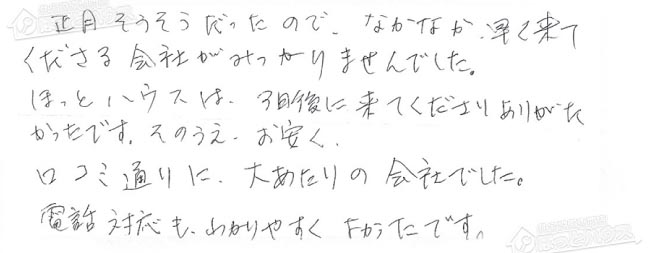 正月そうそうだったので、なかなか、早く来て
くださる会社がみつかりませんでした。
ほっとハウスは、3日後に来てくださりありがた
かったです。そのうえ、お安く、
口コミ通りに、大あたりの会社でした。
電話対応も、わかりやすくよかったです。